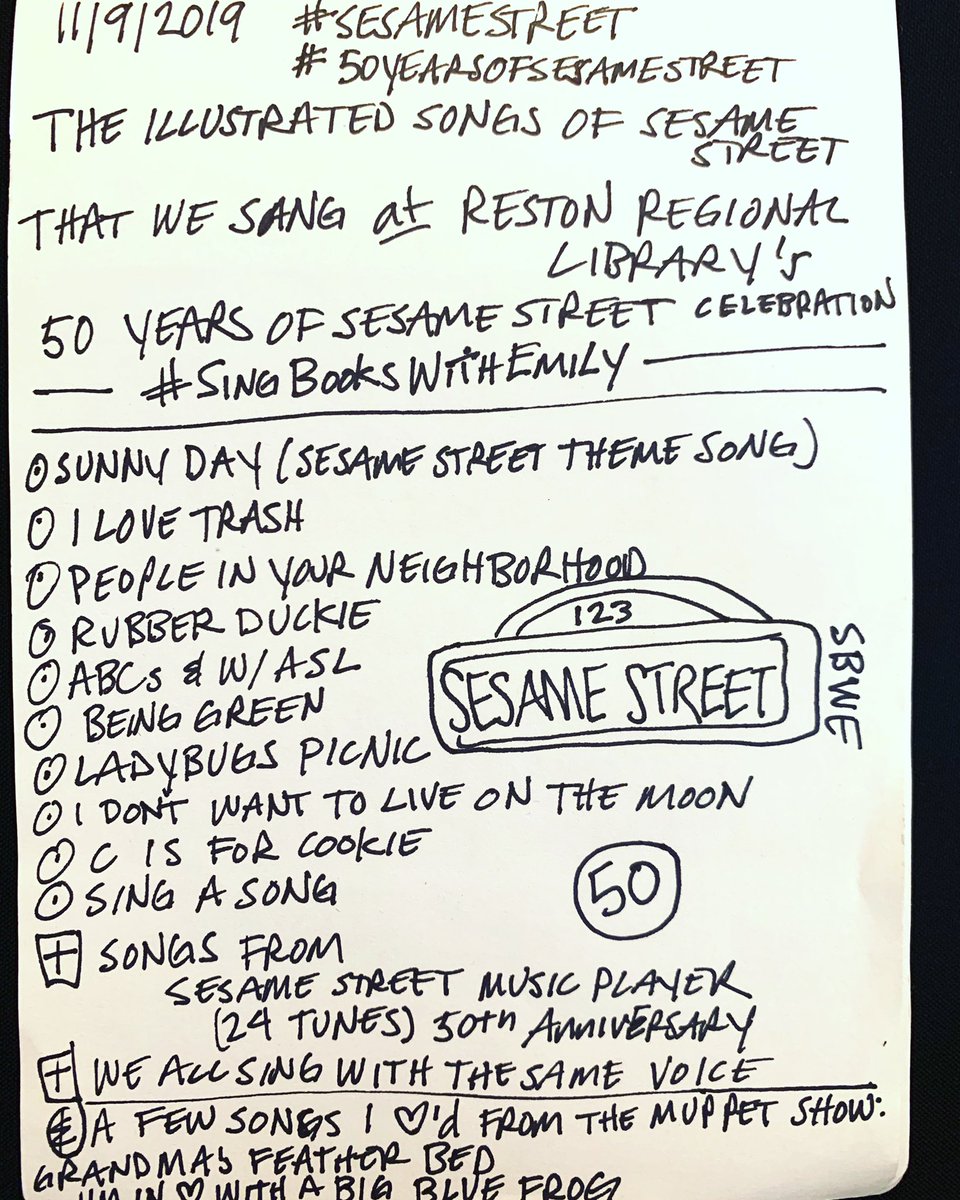 11/9/2019 #SESAMESTREET
#50YEARSOFSESAMESTREET
THE ILLUSTRATED SONGS OF SESAME
STREET
THAT WE SANG at RESTON REGIONAL
LIBRARY's
50 YEARS OF SESAME STREET CELEBRATION
#SINGBOOKSWITHEMILY
SUNNY DAY (SESAME STREET THEME SONG)
I LOVE TRASH
PEOPLE IN YOUR NEIGHBORHOOD
RUBBER DUCKIE
ABCs & W/ ASL
BEING GREEN
LADYBUGS PICNIC
I DON'T WANT TO LIVE ON THE MOON
C IS FOR COOKIE
SING A SONG
123
SESAME STREET
SBWE
50
+ SONGS FROM
SESAME STREET MUSIC PLAYER
(24 TUNES) 50th ANNIVERSARY
+ WE ALL SING WITH THE SAME VOICE
A FEW SONGS I ♡'d FROM THE MUPPET SHOW:
GRANDMA'S FEATHER BED
I'M IN ♡ WITH A BIG BLUE FROG